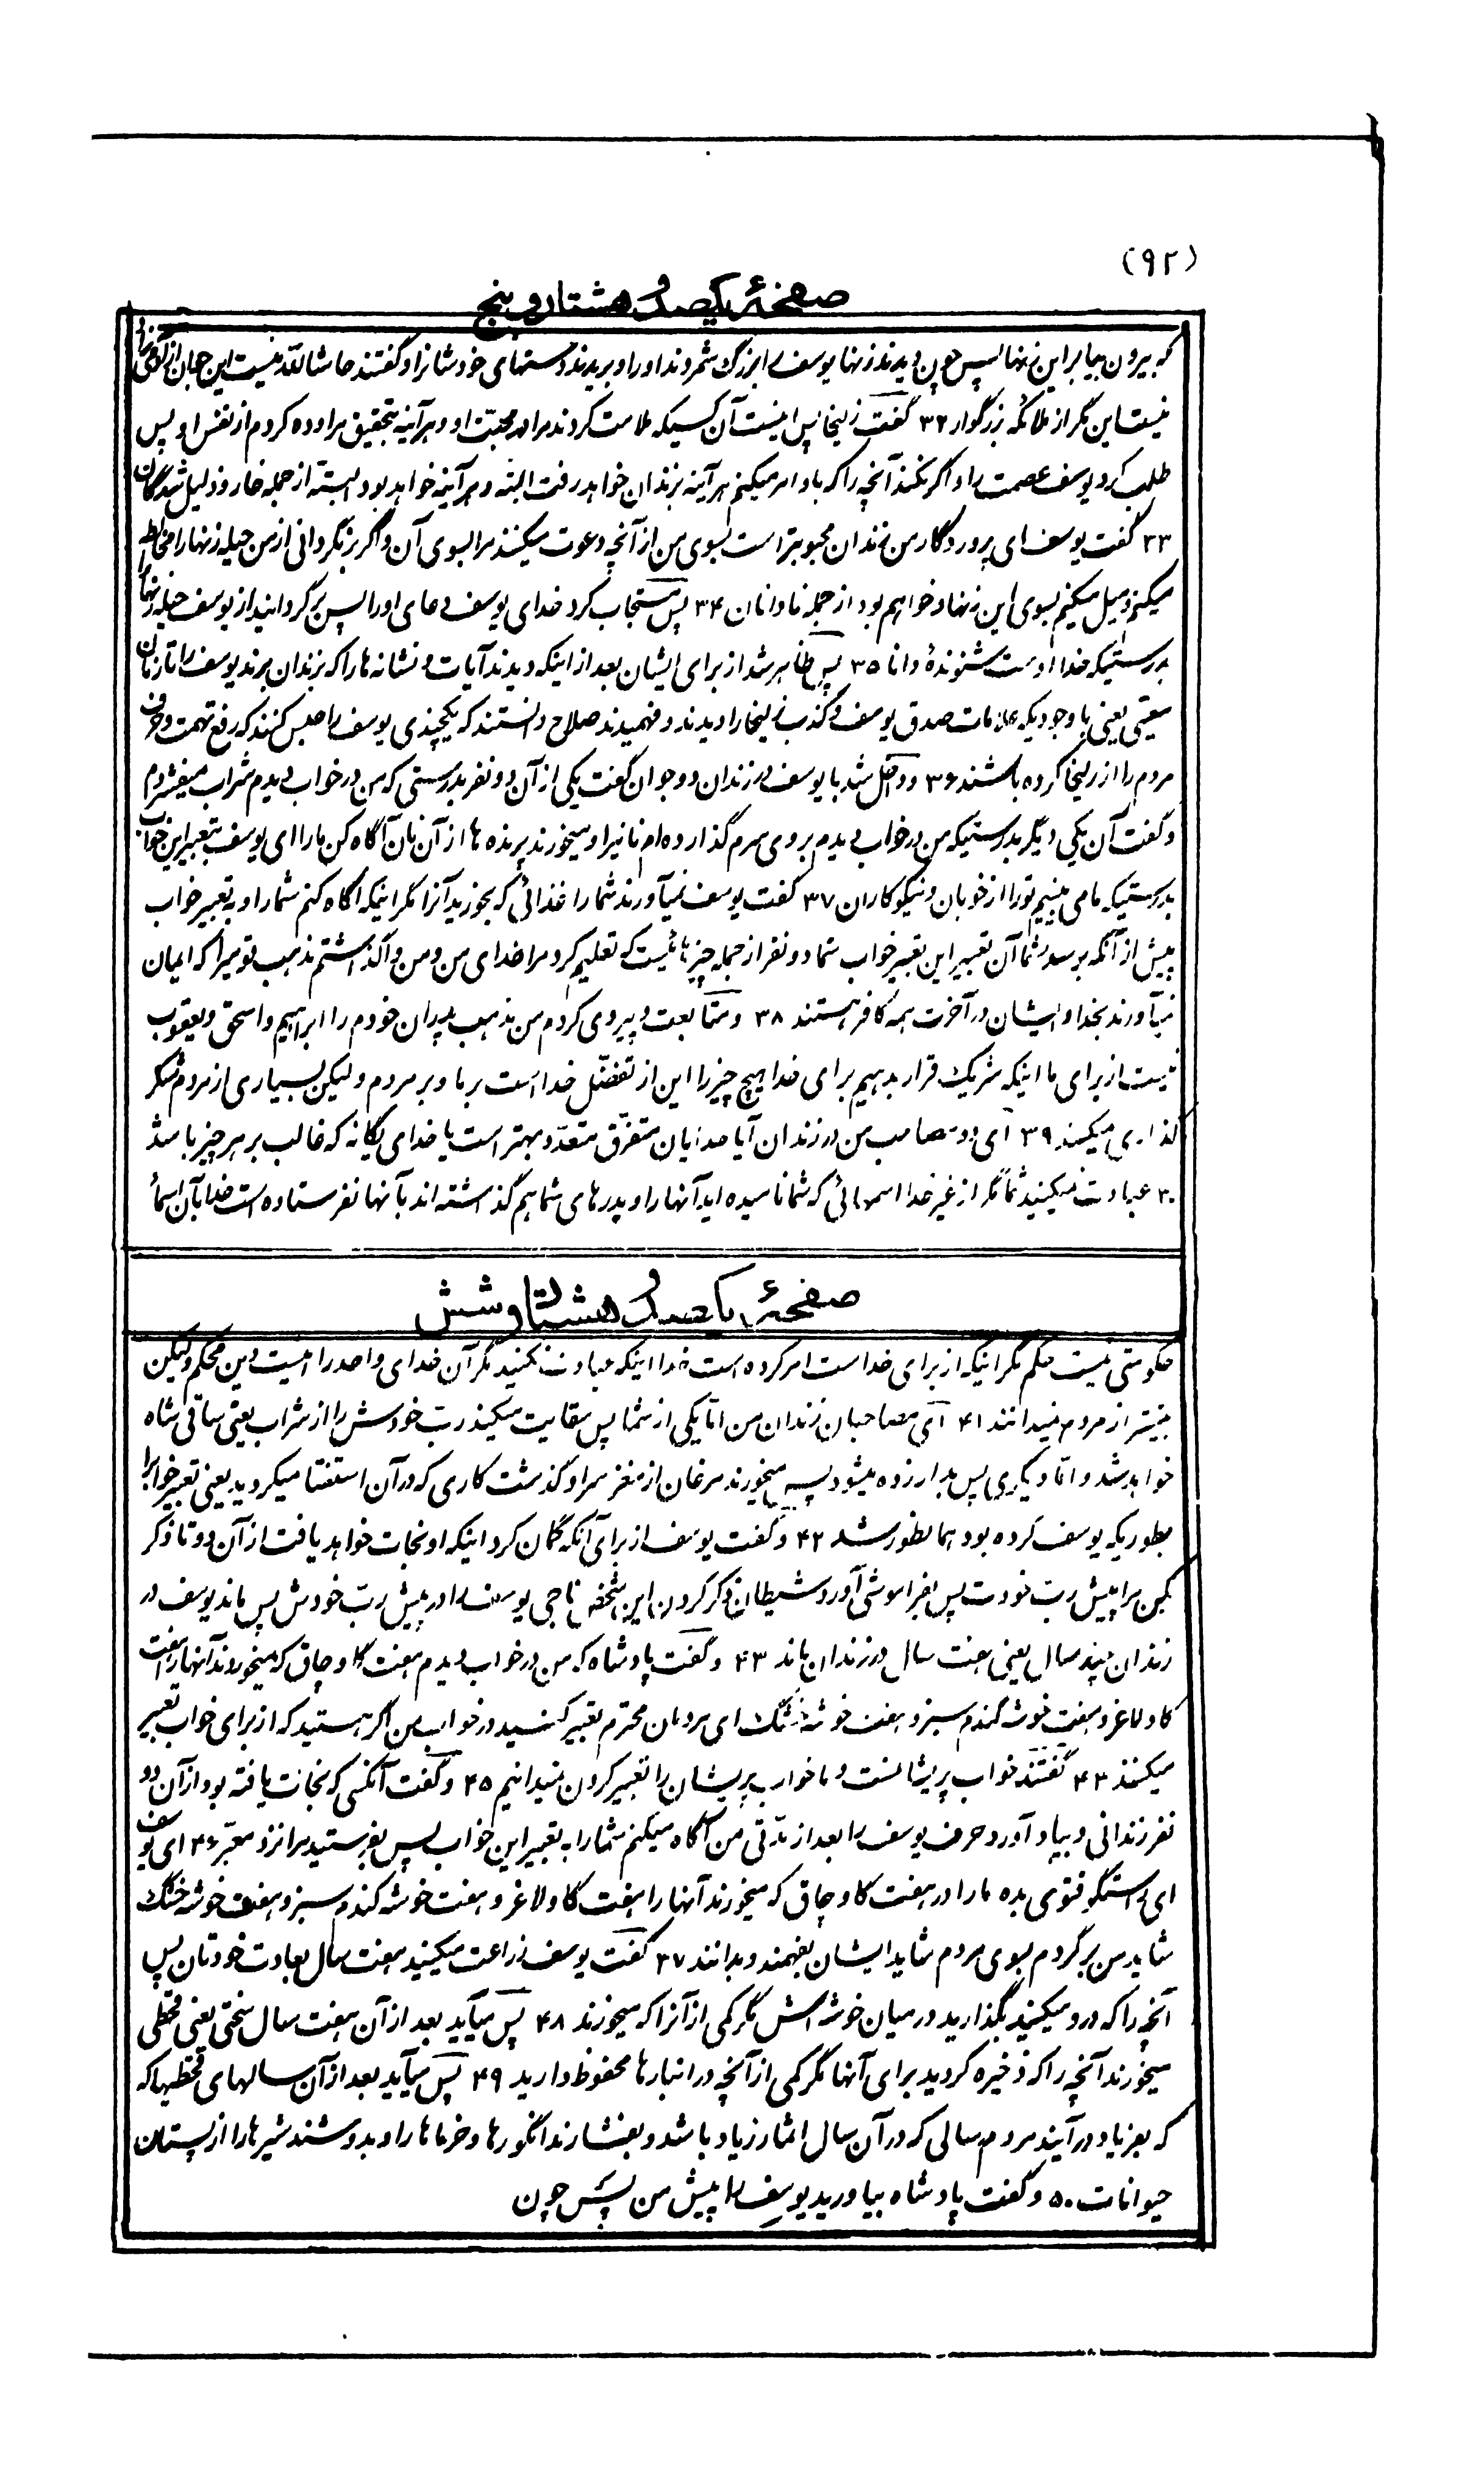 (۹۲)
صفحهٔ یکصد و هشتاد و پنج
که بیرون بیا بر این زنها پس چون دیدند زنها یوسف را بزرگ شمردند او را و بریدند دستهای خودشانرا و گفتند حاشا لله نیست این جوان از آدمی زاد
نیست این مگر از ملائکه بزرگوار ۳۲ گفت زلیخا پس اینست آن کسیکه ملامت کردند مرا در محبت او و هرآینه بتحقیق مراوده کردم از نفس او پس
طلب کرد یوسف عصمت را و اگر نکند آنچه را که باو امر میکنم هرآینه بزندان خواهد رفت البته و هرآینه خواهد بود البته از جمله خار و ذلیل شدگان
۳۳ گفت یوسف ای پروردگار من زندان محبوبتر است بسوی من از آنچه دعوت میکنند مرا بسوی آن و اگر برنگردانی از من حیله زنها را
میکنم و میل میکنم بسوی این زنها و خواهم بود از جمله نادانان ۳۴ پس مستجاب کرد خدای یوسف دعای او را پس برگردانید از یوسف حیله زنها
بدرستیکه خدا اوست شنوندهٔ دانا ۳۵ پس ظاهر شد از برای ایشان بعد از اینکه دیدند آیات و نشانه ها را که بزندان برند یوسف را تا زمان
معینی یعنی با وجودیکه علامات صدق یوسف و کذب زلیخا را دیدند و فهمیدند صلاح دانستند که یکچندی یوسف را حبس کنند که رفع تهمت و حرف
مردم را از زلیخا کرده باشند ۳۶ و داخل شد با یوسف در زندان دو جوان گفت یکی از آن دو نفر بدرستی که من در خواب دیدم شراب میفشردم
و گفت آن یکی دیگر بدرستیکه من در خواب دیدم بروی سرم گذارده ام نانیرا و میخورند پرنده ها از آن نان آگاه کن ما را ای یوسف بتعبیر این خواب
بدرستیکه ما می بینیم تو را از خوبان و نیکوکاران ۳۷ گفت یوسف نمیآورند شما را غذائی که بخورید آنرا مگر اینکه آگاه کنم شما را به تعبیر خواب
پیش از آنکه برسد شما آن تعبیر این تعبیر خواب شما دو نفر از جمله چیزهائیست که تعلیم کرد مرا خدای من و من واگذاشتم مذهب قومیرا که ایمان
نمیآورند بخدا و ایشان در آخرت همه کافر هستند ۳۸ و متابعت و پیروی کردم من مذهب پدران خودم را ابراهیم و اسحق و یعقوب
نیست از برای ما اینکه شریک قرار بدهیم برای خدا هیچ چیز را این از تفضّل خدا است بر ما و بر مردم و لیکن بسیاری از مردم شکر
گذاری میکنند ۳۹ ای دو مصاحب من در زندان آیا خدایان متفرّق متعدّد بهتر است یا خدای یگانه که غالب بر هر چیز باشد
۴۰ عبادت نمیکنید شما مگر از غیر خدا اسمهائی که شما نامیده اید آنها را و پدرهای شما هم گذاشته اند بآنها نفرستاده است خدا بآن اسمأ
صفحهٔ یکصد و هشتاد و شش
حکومتی نیست حکم مگر اینکه از برای خداست امر کرده است خدا اینکه عبادت نکنید مگر آن خدای واحد را اینست دین محکم ولیکن
بیشتر از مردم نمیدانند ۴۱ ای مصاحبان زندان من امّا یکی از شما پس سقایت میکند ربّ خودش را از شراب یعنی ساقی شاه
خواهد شد و امّا دیگری پس بدار زده میشود پس میخورند مرغان از مغز سر او گذشت کاری که در آن استفتا میکردید یعنی تعبیر خوابرا
بطوریکه یوسف کرده بود همانطور شد ۴۲ و گفت یوسف از برای آنکه گمان کرد اینکه او نجات خواهد یافت از آن دو تا ذکر
بکن مرا پیش ربّ خودت پس بفراموشی آورد شیطان ذکر کردن این شخص ناجی یوسف را در پیش ربّ خودش پس ماند یوسف در
زندان چند سال یعنی هفت سال در زندان ماند ۴۳ و گفت پادشاه که من در خواب دیدم هفت گاو چاق که میخوردند آنها را هفت
گاو لاغر و هفت خوشه گندم سبز و هفت خوشه خشک ای مردمان محترم تعبیر کنید در خواب من اگر هستید که از برای خواب تعبیر
میکنند ۴۴ گفتند خواب پریشانست و ما خواب پریشان را تعبیر کردن نمیدانیم ۴۵ و گفت آنکسی که نجات یافته بود از آن دو
نفر زندانی و بیاد آورد حرف یوسف را بعد از مدّتی من آگاه میکنم شما را به تعبیر این خواب پس بفرستید مرا نزد معبّر ۴۶ ای یوسف
ای راستگو فتوی بده ما را در هفت گاو چاق که میخورند آنها را هفت گاو لاغر و هفت خوشه گندم سبز و هفت خوشه خشک
شاید من برگردم بسوی مردم شاید ایشان بفهمند و بدانند ۴۷ گفت یوسف زراعت میکنید هفت سال بعادت خودتان پس
آنچه را که درو میکنید بگذارید در میان خوشه اش مگر کمی از آنرا که میخورند ۴۸ پس میآید بعد از آن هفت سال سختی یعنی قحطی
میخورند آنچه را که ذخیره کردید برای آنها مگر کمی از آنچه در انبارها محفوظ دارید ۴۹ پس میآید بعد از آن سالهای قحطیها که
که بفریاد درآیند مردم سالی که در آن سال اثمار زیاد باشد و بفشارند انگورها و خرماها را و بدوشند شیرها را از پستان
حیوانات ۵۰ و گفت پادشاه بیاورید یوسف را پیش من پس چون